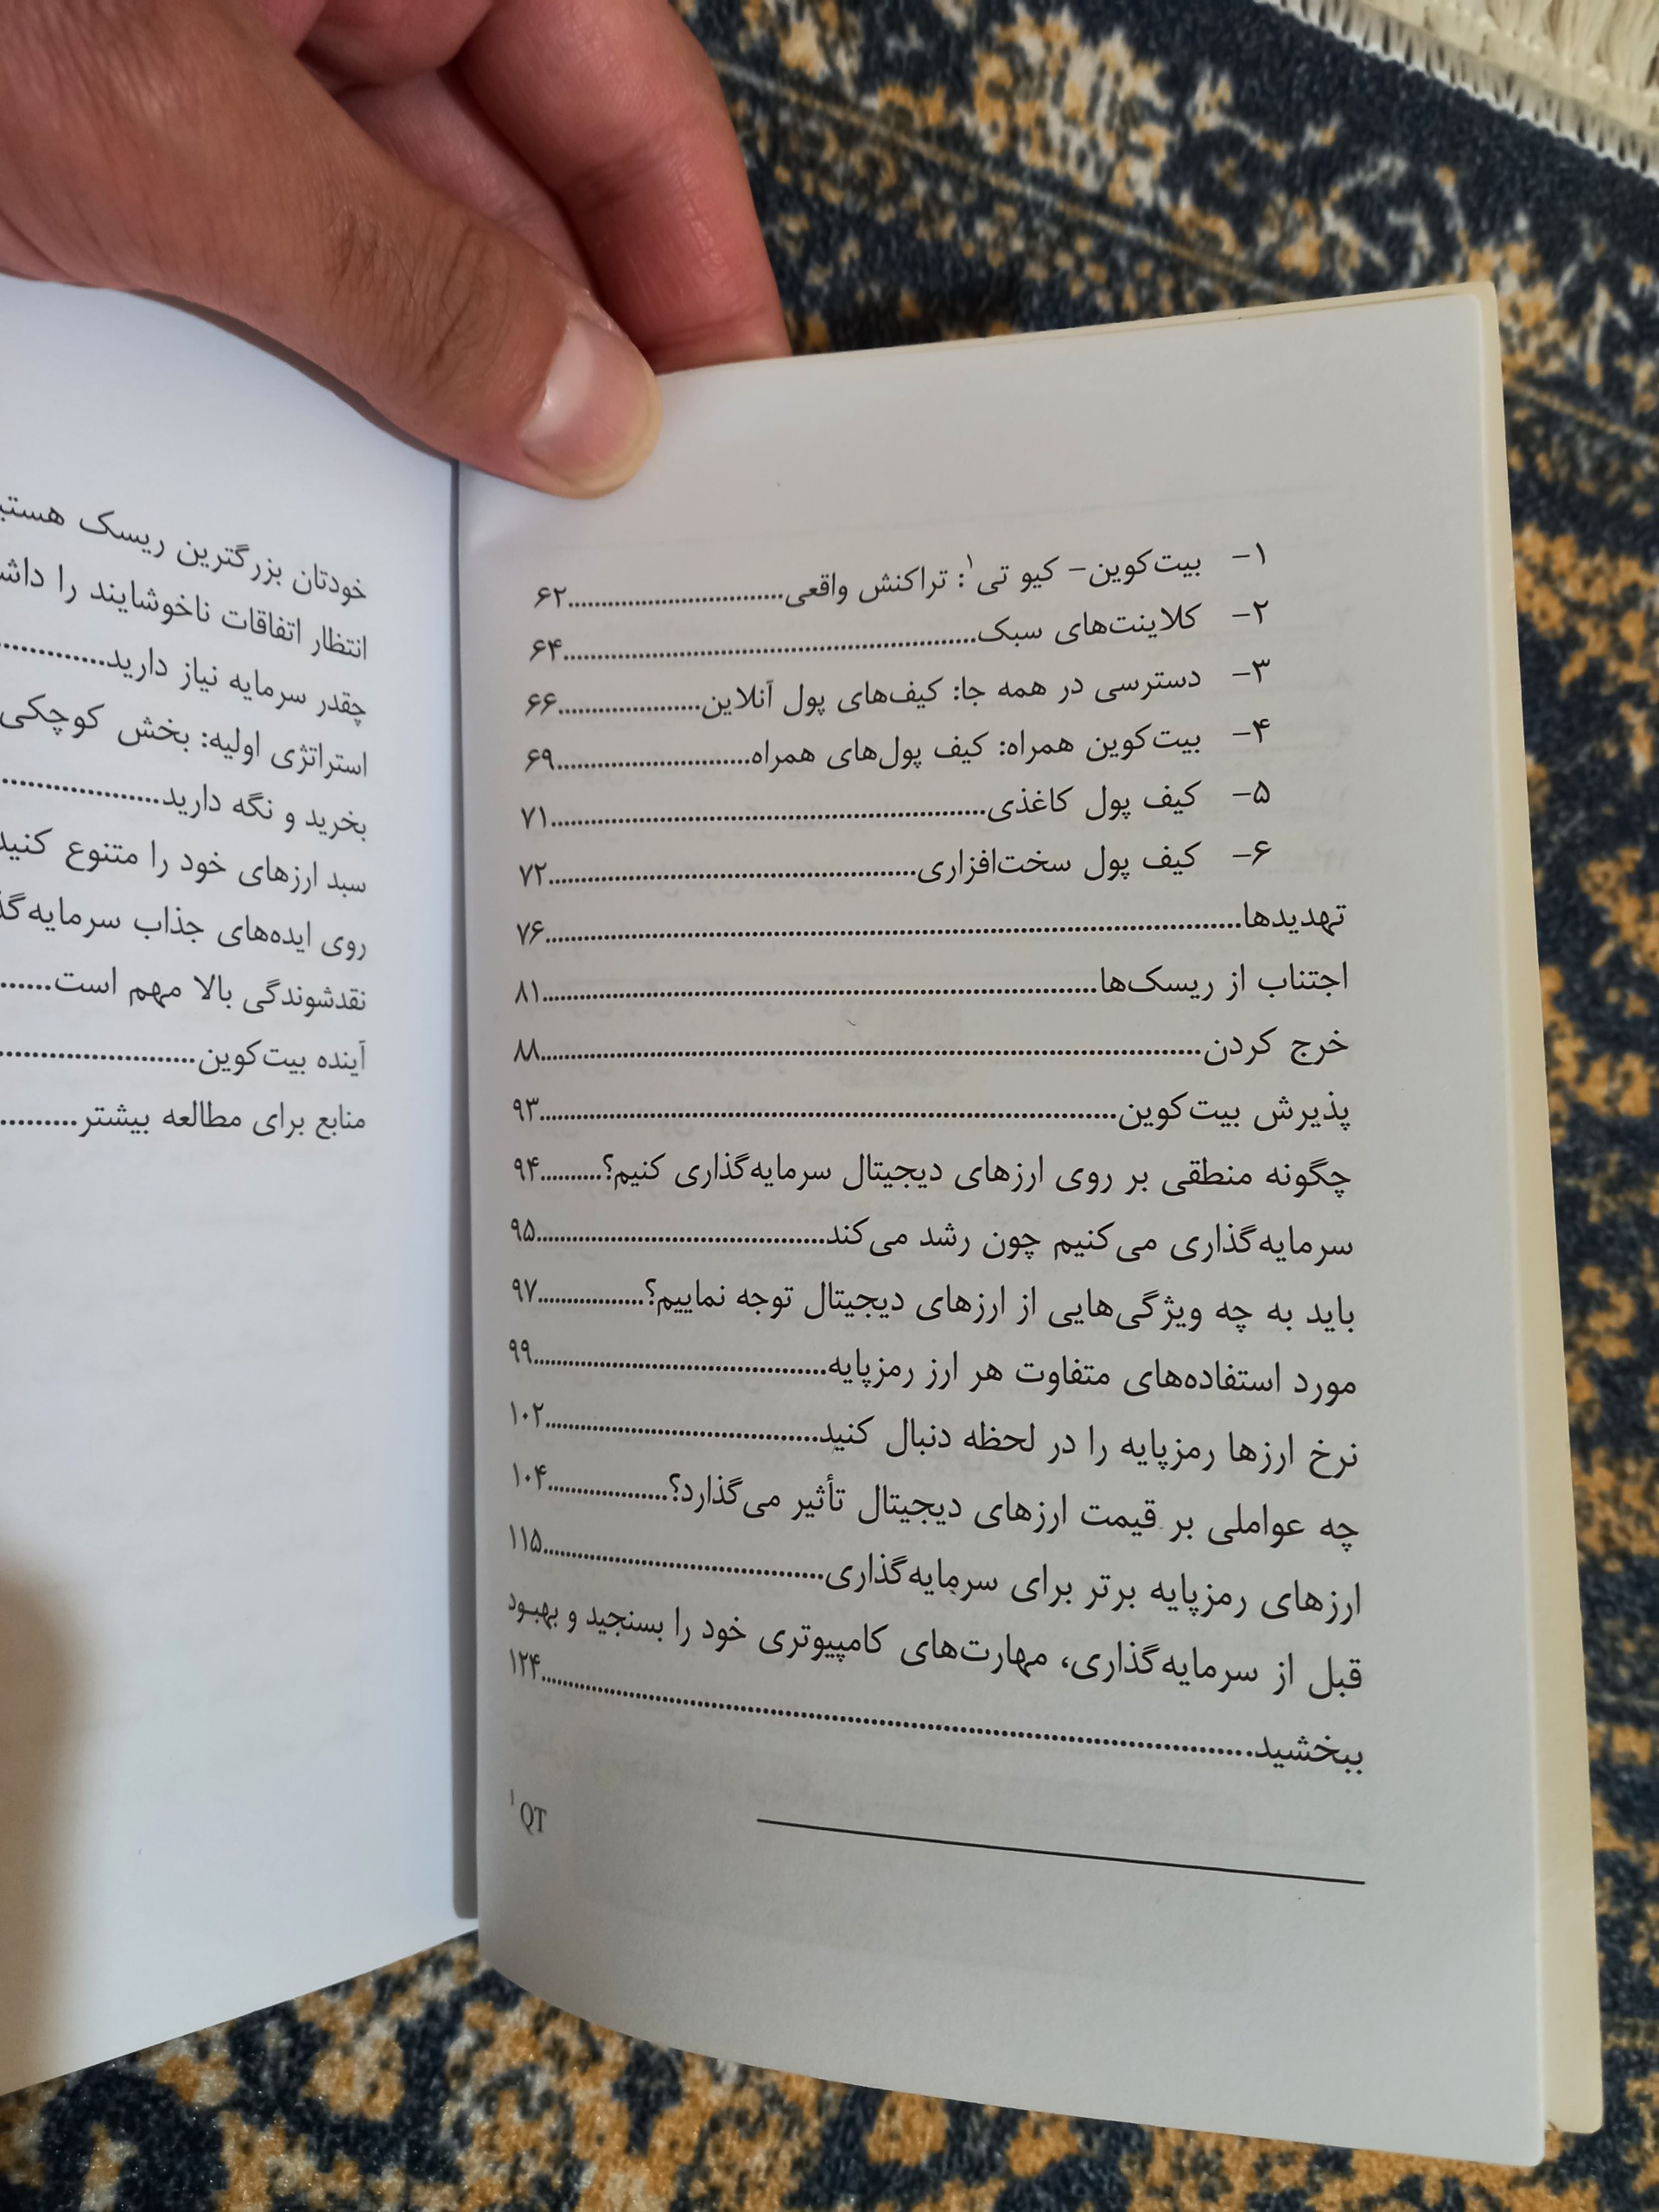 ۱- بیت‌کوین- کیو تی۱: تراکنش واقعی................................۶۲
۲- کلاینت‌های سبک................................................................۶۴
۳- دسترسی در همه جا: کیف‌های پول آنلاین.....................۶۶
۴- بیت‌کوین همراه: کیف پول‌های همراه.............................۶۹
۵- کیف پول کاغذی.................................................................۷۱
۶- کیف پول سخت‌افزاری.......................................................۷۲
تهدیدها..........................................................................................................۷۶
اجتناب از ریسک‌ها.....................................................................................۸۱
خرج کردن....................................................................................................۸۸
پذیرش بیت‌کوین........................................................................................۹۳
چگونه منطقی بر روی ارزهای دیجیتال سرمایه‌گذاری کنیم؟..........۹۴
سرمایه‌گذاری می‌کنیم چون رشد می‌کند............................................۹۵
باید به چه ویژگی‌هایی از ارزهای دیجیتال توجه نماییم؟.................۹۷
مورد استفاده‌های متفاوت هر ارز رمزپایه............................................۹۹
نرخ ارزها رمزپایه را در لحظه دنبال کنید..........................................۱۰۲
چه عواملی بر قیمت ارزهای دیجیتال تأثیر می‌گذارد؟...................۱۰۴
ارزهای رمزپایه برتر برای سرمایه‌گذاری...........................................۱۱۵
قبل از سرمایه‌گذاری، مهارت‌های کامپیوتری خود را بسنجید و بهبود
ببخشید..........................................................................................................۱۲۴
۱ QT
خودتان بزرگترین ریسک
انتظار اتفاقات ناخوشایند را
چقدر سرمایه نیاز دارید................
استراتژی اولیه: بخش کوچکی
بخرید و نگه دارید........................
سبد ارزهای خود را متنوع
روی ایده‌های جذاب
نقدشوندگی بالا مهم است.......
آینده بیت‌کوین..............................
منابع برای مطالعه بیشتر...........